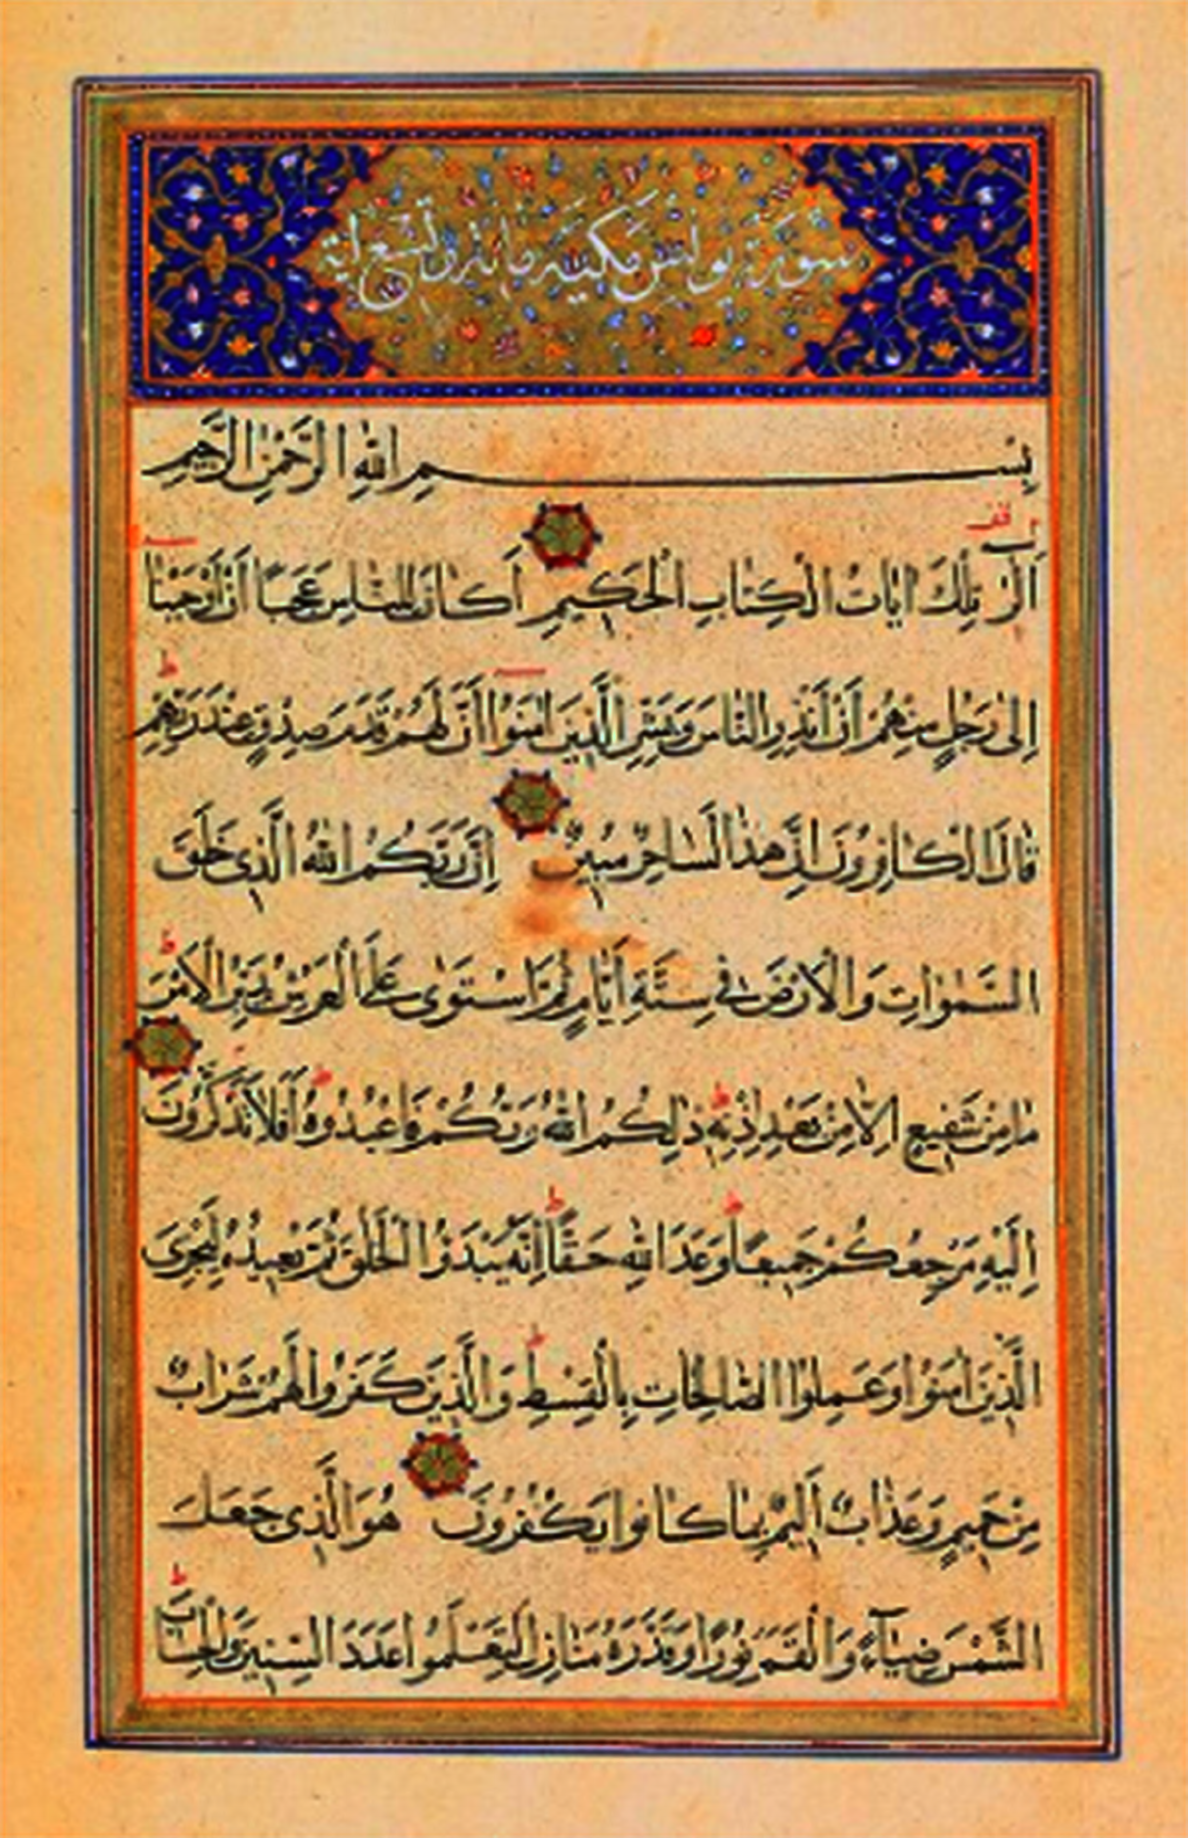 سورة يونس مكية مائة وتسع اية
بِسْمِ اللّٰهِ الرَّحْمٰنِ الرَّحِيمِ
قف
الٓرٰ تِلْكَ اٰيَاتُ الْكِتَابِ الْحَكِيمِ اَكَانَ لِلنَّاسِ عَجَبًا اَنْ اَوْحَيْنَا
اِلٰى رَجُلٍ مِنْهُمْ اَنْ اَنْذِرِ النَّاسَ وَبَشِّرِ الَّذِينَ اٰمَنُوا اَنَّ لَهُمْ قَدَمَ صِدْقٍ عِنْدَ رَبِّهِمْ ط
قَالَ الْكَافِرُونَ اِنَّ هٰذَا لَسَاحِرٌ مُبِينٌ اِنَّ رَبَّكُمُ اللّٰهُ الَّذِى خَلَقَ
السَّمٰوَاتِ وَالْاَرْضَ فِى سِتَّةِ اَيَّامٍ ثُمَّ اسْتَوٰى عَلَى الْعَرْشِ يُدَبِّرُ الْاَمْرَ ط
مَا مِنْ شَفِيعٍ اِلَّا مِنْ بَعْدِ اِذْنِهِ ط ذٰلِكُمُ اللّٰهُ رَبُّكُمْ فَاعْبُدُوهُ ط اَفَلَا تَذَكَّرُونَ
اِلَيْهِ مَرْجِعُكُمْ جَمِيعًا ط وَعْدَ اللّٰهِ حَقًّا ط اِنَّهُ يَبْدَؤُا الْخَلْقَ ثُمَّ يُعِيدُهُ لِيَجْزِىَ
الَّذِينَ اٰمَنُوا وَعَمِلُوا الصَّالِحَاتِ بِالْقِسْطِ ط وَالَّذِينَ كَفَرُوا لَهُمْ شَرَابٌ
مِنْ حَمِيمٍ وَعَذَابٌ اَلِيمٌ بِمَا كَانُوا يَكْفُرُونَ هُوَ الَّذِى جَعَلَ
الشَّمْسَ ضِيَاءً وَالْقَمَرَ نُورًا وَقَدَّرَهُ مَنَازِلَ لِتَعْلَمُوا عَدَدَ السِّنِينَ وَالْحِسَابَ ط